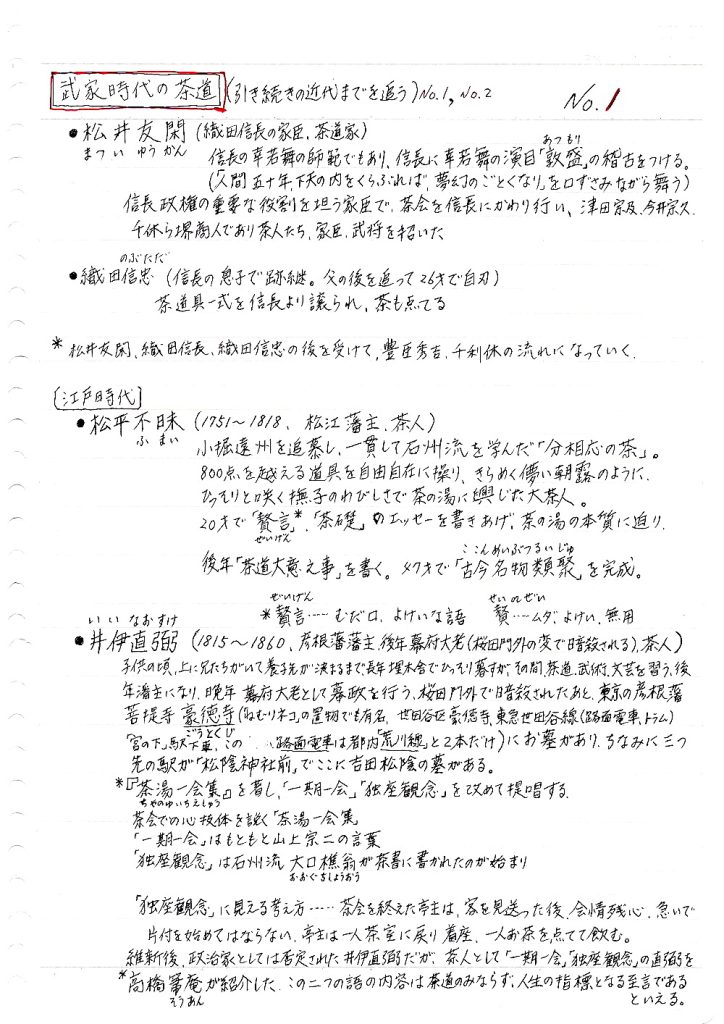 武家時代の茶道 (引き続きの近代までを追う) No.1, No.2 No.1
●松井友閑 (織田信長の家臣、茶道家)
まつい ゆうかん
あつもり
信長の幸若舞の師範でもあり、信長に幸若舞の演目「敦盛」の稽古をつける。
(人間五十年、下天の内をくらぶれば、夢幻のごとくなり」を口ずさみながら舞う)
信長政権の重要な役割を担う家臣で、茶会を信長にかわり行い、津田宗及、今井宗久、
千休ら堺商人であり茶人たち、家臣、武将を招いた
のぶただ
●織田信忠 (信長の息子で跡継。父の後を追って26才で自刃)
茶道具一式を信長より譲られ、茶も点てる
* 松井友閑、織田信長、織田信忠の後を受けて、豊臣秀吉、千利休の流れになっていく.
[江戸時代]
●松平不昧 (1751~1818、松江藩主、茶人)
ふまい
小堀遠州を追慕し、一貫して石州流を学んだ「分相応の茶」。
800点を越える道具を自由自在に操り、きらめく儚い朝露のように、
ひっそりと咲く撫子のわびしさで茶の湯に興じた大茶人。
20才で「贅言」*、「茶礎」のエッセーを書きあげ、茶の湯の本質に迫り、
ぜいげん
ここんめいぶつるいじゅ
後年「茶道大意之事」を書く。47才で「古今名物類聚」を完成。
ぜいげん せいのぜい
*贅言……むだ口、よけいな語 贅…ムダ、よけい、無用
いい なおすけ
●井伊直弼 (1815~1860、彦根藩藩主、後年幕府大老(桜田門外の変で暗殺される)、茶人)
子供の頃、上に兄たちがいて養子先が決まるまで、長年埋木舎でひっそり暮すが、その間、茶道、武術、文芸を習う、後
年藩主になり、晩年 幕府大老として幕政を行う、桜田門外で暗殺されたあと、東京の彦根藩
菩提寺 豪徳寺(ねむりネコの置物でも有名、世田谷区豪徳寺、東急世田谷線(路面電車、トラム)
ごうとくじ
「宮の下」駅下車、この 路面電車は都内荒川線」と2本だけ)にお墓があり、ちなみに三つ
先の駅が「松陰神社前」でここに吉田松陰の墓がある。
*『茶湯一会集』を著し、「一期一会」「独座観念」を改めて提唱する.
ちゃのゆいちえしゅう
茶会での心技体を説く「茶湯一会集
「一期一会」はもともと山上宗二の言葉
「独座観念」は石州流 大口樵翁が茶書に書かれたのが始まり
おおぐちしょうおう
「独座観念」に見える考え方……茶会を終えた亭主は、客を見送った後、余情残心、急いで
片付を始めてはならない、亭主は一人茶室に戻り着座、一人お茶を点てて飲む。
維新後、政治家としては否定された井伊直弼だが、茶人として「一期一会」「独座観念」の直弼を
*高橋箒庵が紹介した、この二つの語の内容は茶道のみならず、人生の指標となる至言である
そうあん といえる。